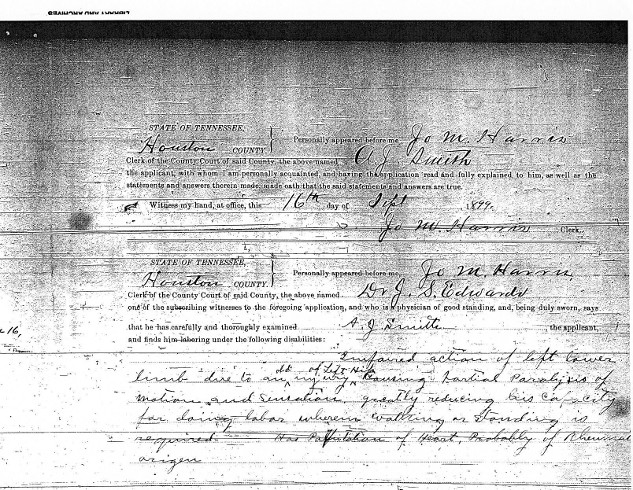 STATE OF TENNESSEE,
Houston COUNTY.
Personally appeared before me Jo M. Harris
Clerk of the County Court of said County, the above named A J Smith
the applicant, with whom I am personally acquainted, and having the application read and fully explained to him, as well as the
statements and answers therein made, made oath that the said statements and answers are true.
Witness my hand, at office, this 16th day of Sept 1899.
Jo M. Harris Clerk
STATE OF TENNESSEE,
Houston COUNTY.
Personally appeared before me Jo M. Harris,
Clerk of the County Court of said County, the above named Dr J. S. Edwards
one of the subscribing witnesses to the foregoing application, and who is a physician of good standing, and, being duly sworn, says
that he has carefully and thoroughly examined A. J. Smith the applicant,
and finds him laboring under the following disabilities:
16,
Impaired action of left Lower
limb due to an injury of Left Hip Causing Partial Paralysis of
motion and Sensation, greatly reducing his Capacity
for doing labor wherein walking or Standing is
required. Has Palpitation of Heart, Probably of
origen